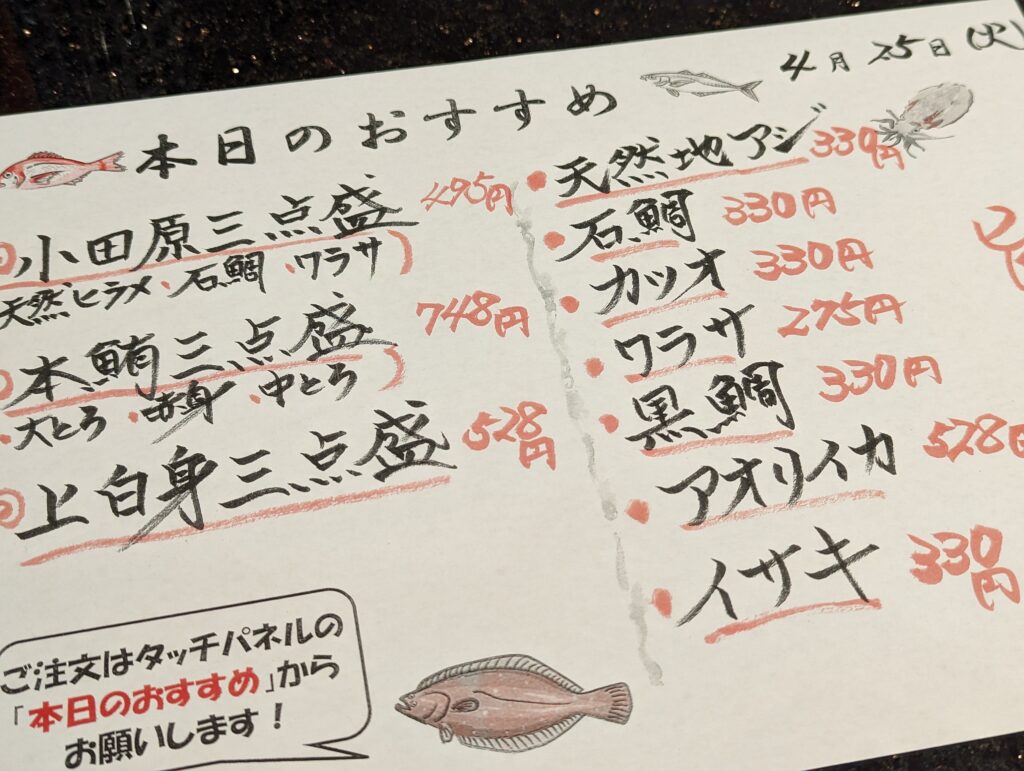 4月25日(火)
本日のおすすめ
小田原三点盛 495円
天然ヒラメ・石鯛・ワラサ)
本鮪三点盛 748円
・大とろ・赤身・中とろ)
上白身三点盛 528円
・天然地アジ 330円
・石鯛 330円
・カツオ 330円
・ワラサ 275円
・黒鯛 330円
・アオリイカ 528円
・イサキ 330円
ご注文はタッチパネルの
「本日のおすすめ」から
お願いします!